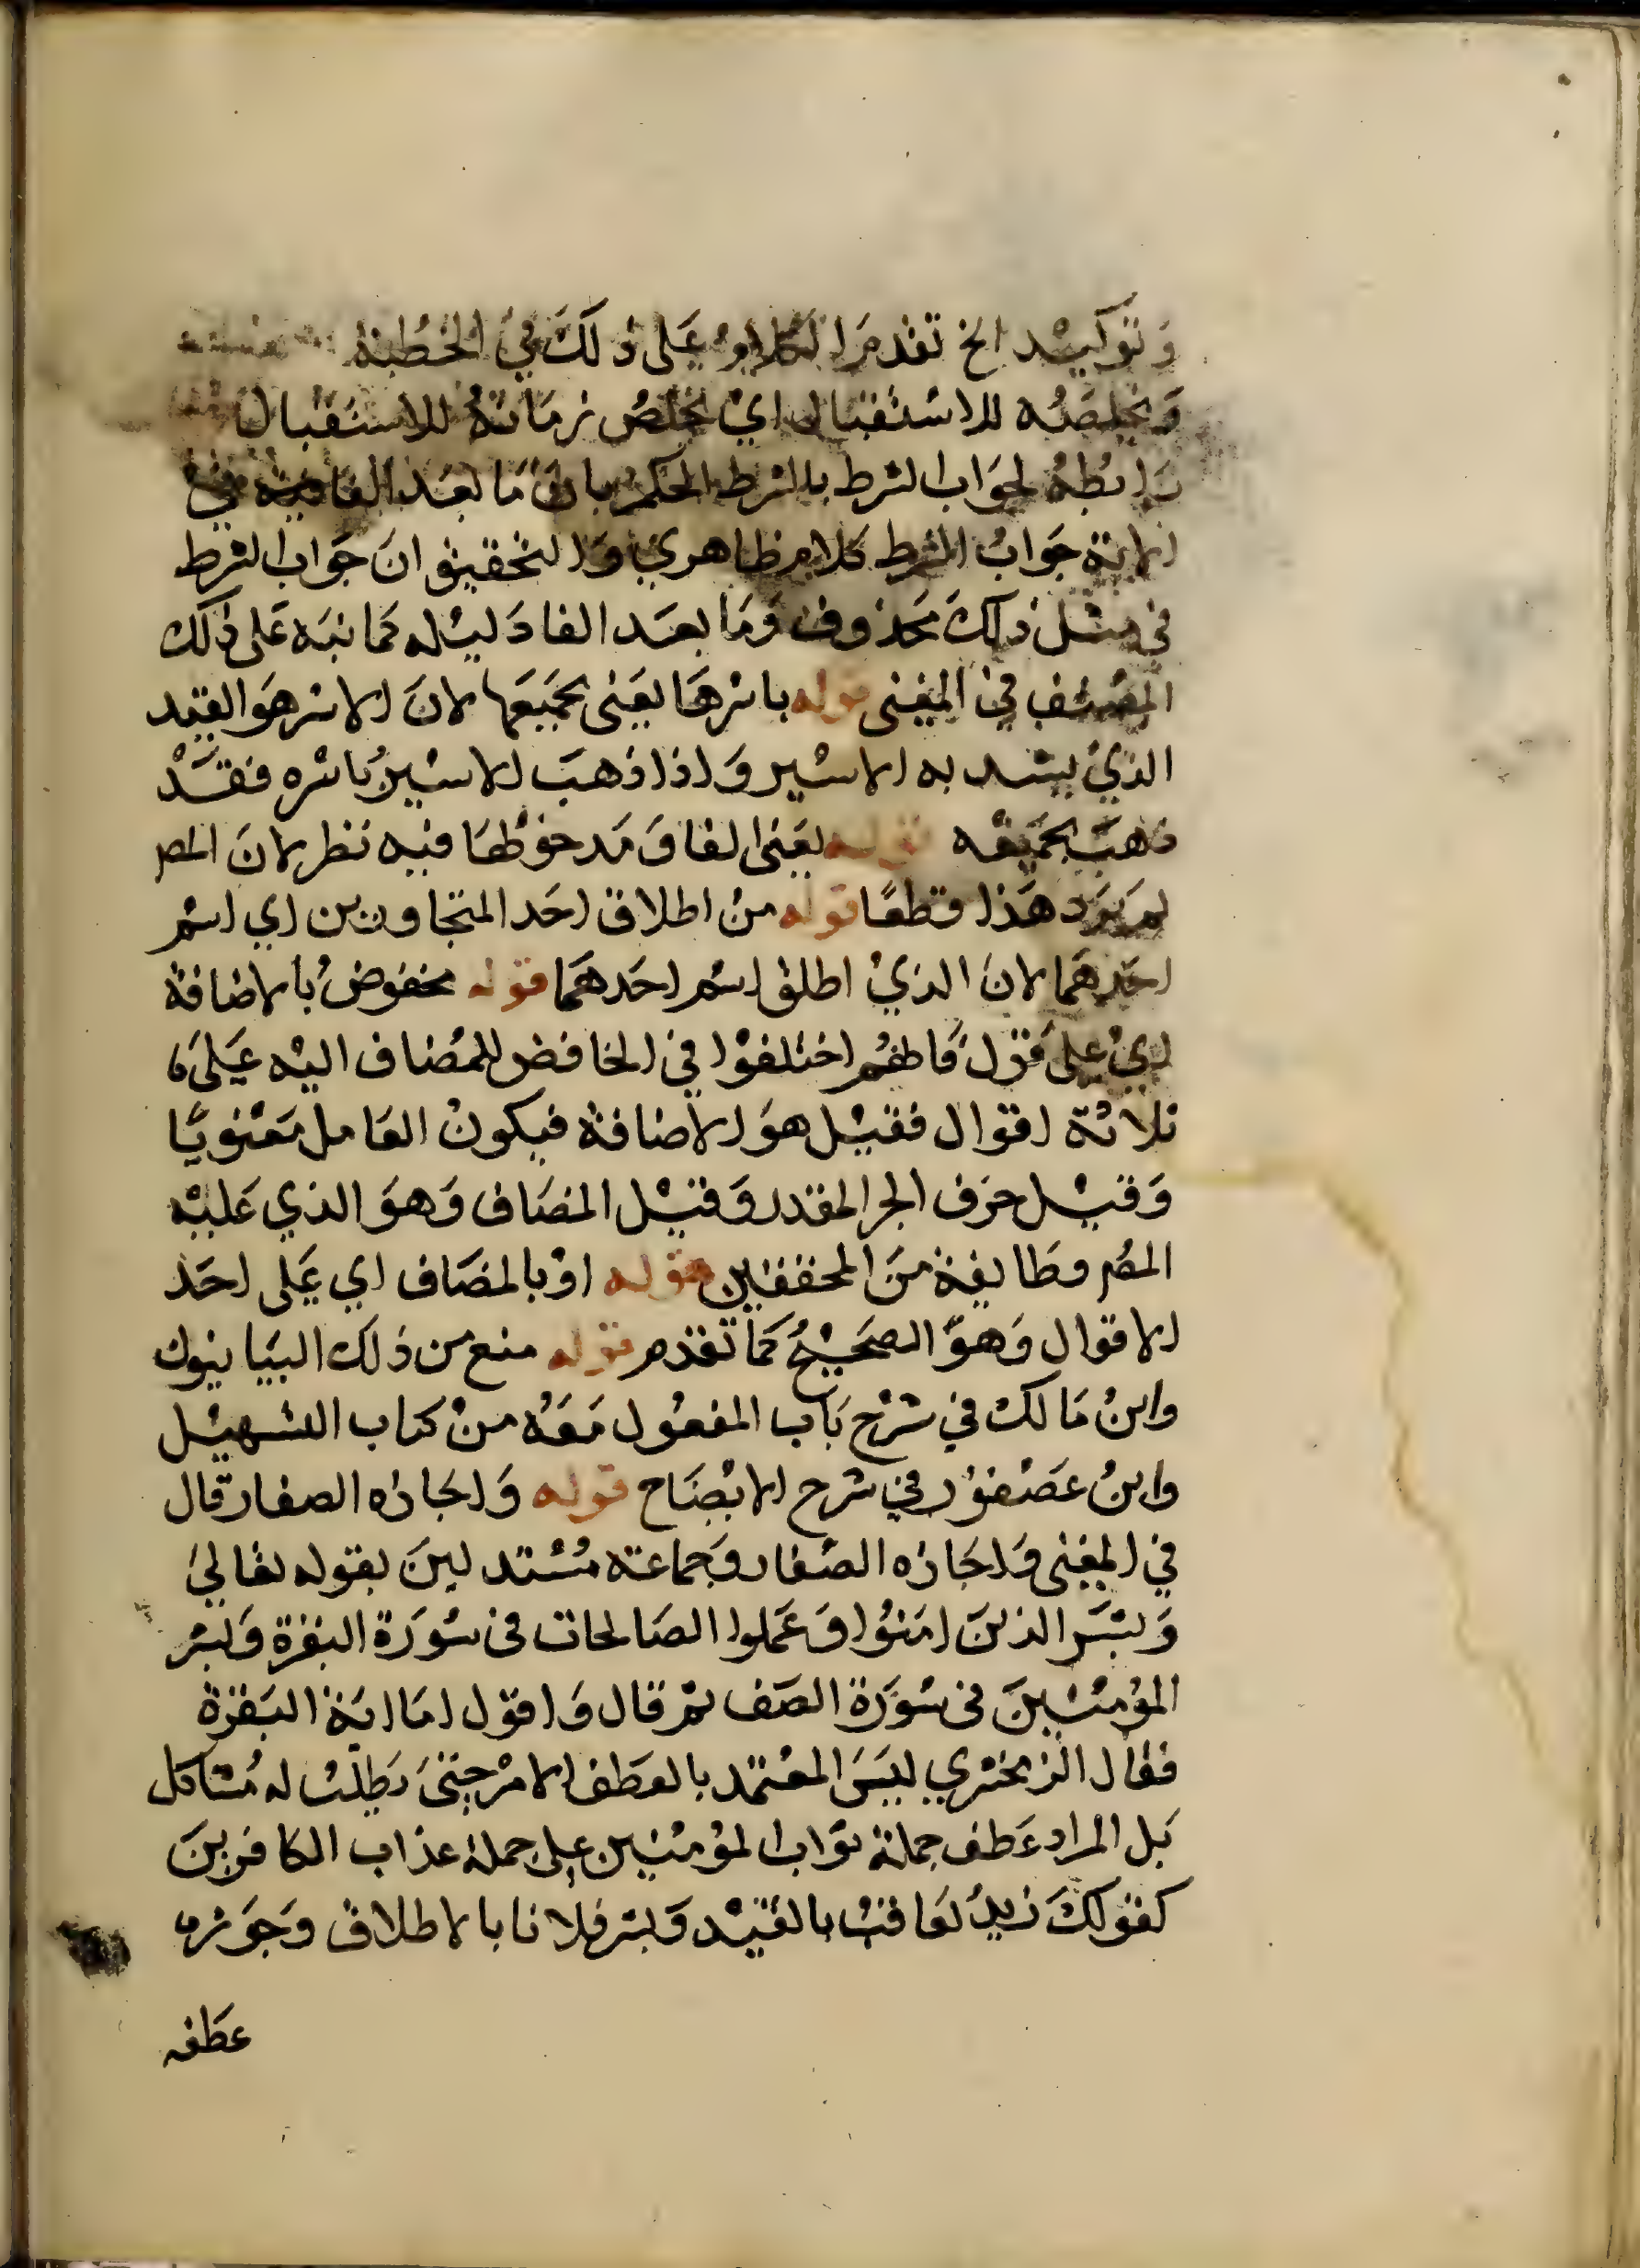 وتوكيد الخ تقدم الكلام على ذلك في الخطبة
وتخلصه للاستقبال اي تخلص زمانه للاستقبال
رابطة لجواب الشرط بالشرط الحكم بان ما بعد الفا في
الاية جواب الشرط كلام ظاهري والتحقيق ان جواب الشرط
في مثل ذلك محذوف وما بعد الفا دليله كما نبه على ذلك
المصنف في المغنى قوله باسرها يعنى بجميعها لان الاسر هو القيد
الذي يشد به الاسير واذا ذهب الاسير باسره فقد
ذهب بجميعه قوله يعنى الفا ومدخولها فيه نظر لان المص
لم يرد هذا قطعا قوله من اطلاق احد المتجاورين اي اسم
احدهما لان الذي اطلق اسم احدهما قوله مخفوض بالاضافة
اي على قول فانهم اختلفوا في الخافض للمضاف اليه على
ثلاثة اقوال فقيل هو الاضافة فيكون العامل معنويا
وقيل حرف الجر المقدر وقيل المضاف وهو الذي عليه
المص وطايفة من المحققين قوله او بالمضاف اي على احد
الاقوال وهو الصحيح كما تقدم قوله منع من ذلك البيانيون
وابن مالك في شرح باب المفعول معه من كتاب التسهيل
وابن عصفور في شرح الايضاح قوله واجازه الصفار قال
في المغنى واجازه الصفار وجماعة مستدلين بقوله تعالى
وبشر الذين امنوا وعملوا الصالحات في سورة البقرة وبشر
المؤمنين في سورة الصف ثم قال واقول اما اية البقرة
فقال الزمخشري ليس المعتمد بالعطف الامر حتى يطلب له مشاكل
بل المراد عطف جملة ثواب المؤمنين على جملة عذاب الكافرين
كقولك زيد يعاقب بالقيد وبشر فلانا بالاطلاق وجوز
عطفه